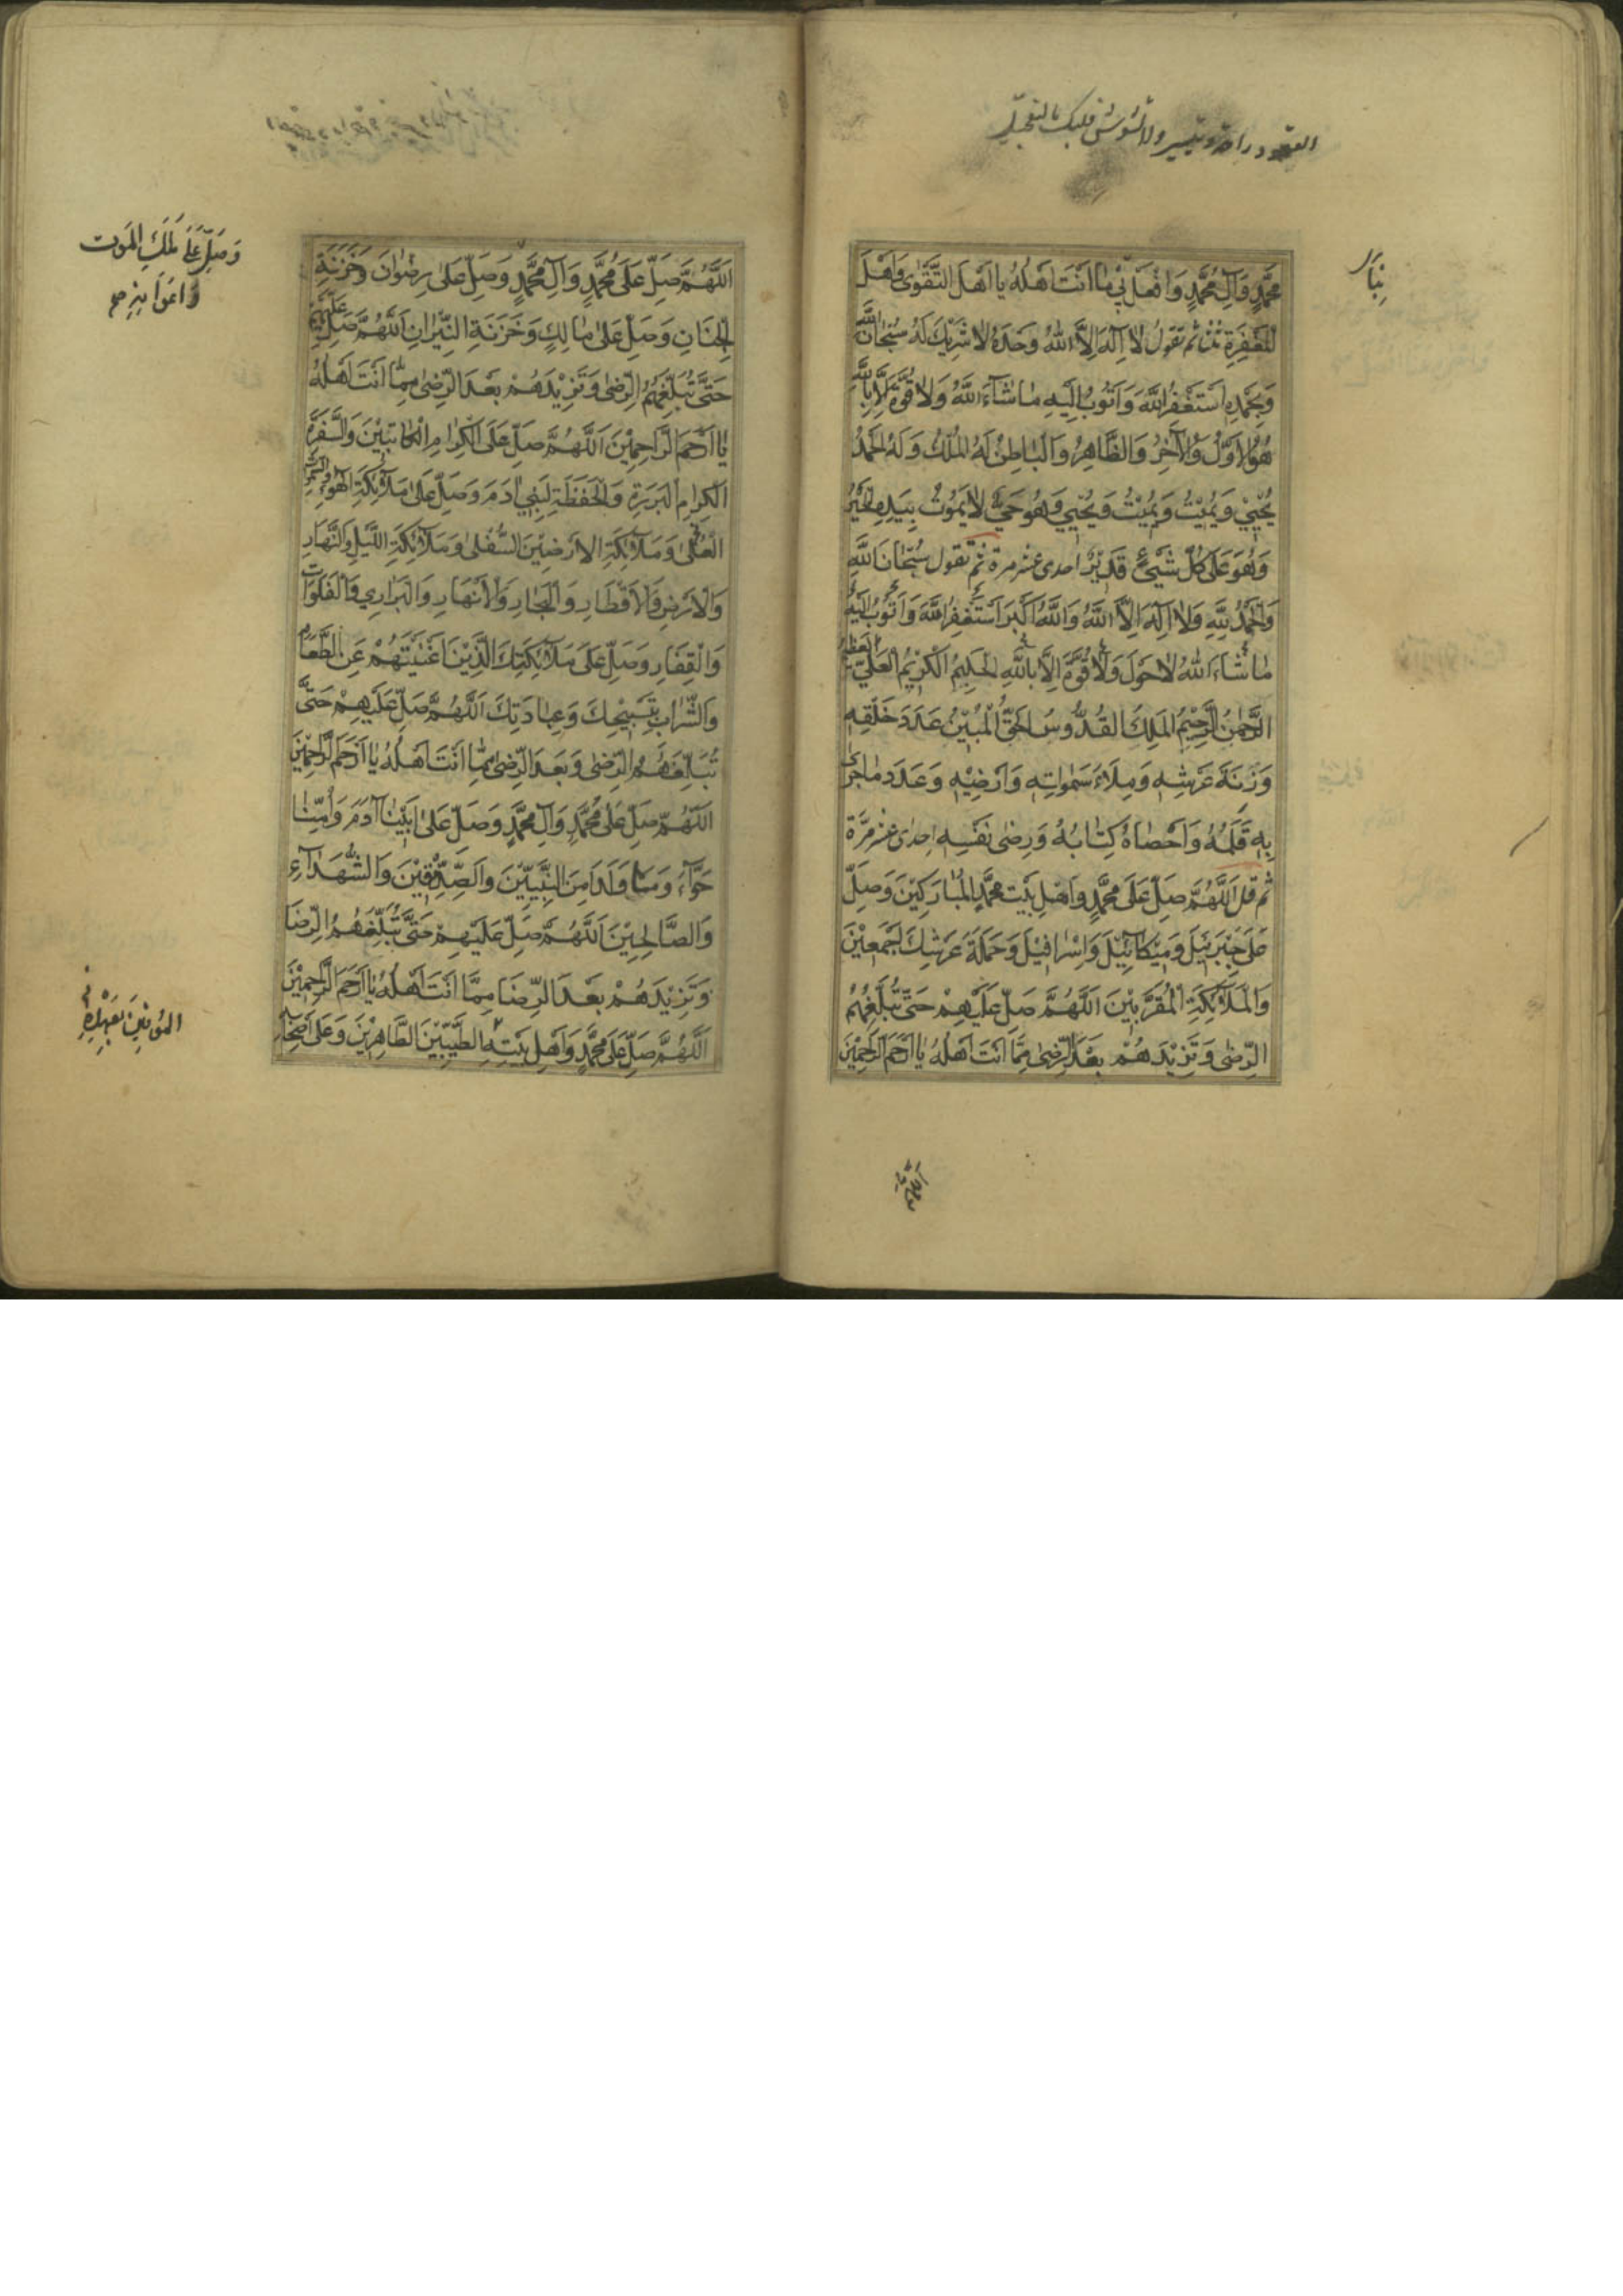 محَمَّدٍ وَآلِ مُحَمَّدٍ وَافْعَلْ بِي مَا اَنْتَ اَهْلُهُ يَا اَهْلَ التَّقْوٰى وَاَهْلَ
الْمَغْفِرَةِ ثُمَّ تَقُولُ لَا اِلٰهَ اِلَّا اللهُ وَحْدَهُ لَا شَرِيْكَ لَهُ سُبْحَانَ اللهِ
وَبِحَمْدِهِ اَسْتَغْفِرُ اللهَ وَاَتُوبُ اِلَيْهِ مَا شَآءَ اللهُ وَلَا قُوَّةَ اِلَّا بِاللهِ
هُوَ الْاَوَّلُ وَالْآخِرُ وَالظَّاهِرُ وَالْبَاطِنُ لَهُ الْمُلْكُ وَلَهُ الْحَمْدُ
يُحْيِيْ وَيُمِيْتُ وَيُمِيْتُ وَيُحْيِي وَهُوَ حَيٌّ لَا يَمُوتُ بِيَدِهِ الْخَيْرُ
وَهُوَ عَلٰى كُلِّ شَيْءٍ قَدِيْرٌ احدى عشر مرة ثم تقول سُبْحَانَ اللهِ
وَالْحَمْدُ لِلّٰهِ وَلَا اِلٰهَ اِلَّا اللهُ وَاللهُ اَكْبَرُ اَسْتَغْفِرُ اللهَ وَاَتُوبُ اِلَيْهِ
مَا شَاءَ اللهُ لَا حَوْلَ وَلَا قُوَّةَ اِلَّا بِاللهِ الْحَلِيْمِ الْكَرِيْمِ الْعَلِيِّ الْعَظِيْمِ
الرَّحْمٰنِ الرَّحِيْمِ الْمَلِكِ الْقُدُّوسِ الْحَقِّ الْمُبِيْنِ عَدَدَ خَلْقِهِ
وَزِنَةَ عَرْشِهِ وَمِلَاءَ سَمٰوَاتِهِ وَاَرْضِيْهِ وَعَدَدَ مَا جَرٰى
بِهِ قَلَمُهُ وَاَحْصَاهُ كِتَابُهُ وَرِضٰى نَفْسِهِ احدى عشر مَرَّة
ثم قل اَللّٰهُمَّ صَلِّ عَلَى مُحَمَّدٍ وَاَهْلِ بَيْتِ مُحَمَّدٍ الْمُبَارَكِيْنَ وَصَلِّ
عَلَى جَبْرَئِيْلَ وَمِيْكَآئِيْلَ وَاِسْرَافِيْلَ وَحَمَلَةِ عَرْشِكَ اَجْمَعِيْنَ
وَالْمَلَآئِكَةِ الْمُقَرَّبِيْنَ اَللّٰهُمَّ صَلِّ عَلَيْهِمْ حَتّٰى تُبَلِّغَهُمُ
الرِّضٰى وَتَزِيْدَهُمْ بَعْدَ الرِّضٰى مِمَّا اَنْتَ اَهْلُهُ يَا اَرْحَمَ الرَّاحِمِيْنَ
اَللّٰهُمَّ صَلِّ عَلَى مُحَمَّدٍ وَآلِ مُحَمَّدٍ وَصَلِّ عَلٰى رِضْوَانَ وَخَزَنَةِ
الْجِنَانِ وَصَلِّ عَلٰى مَالِكٍ وَخَزَنَةِ النِّيْرَانِ اَللّٰهُمَّ صَلِّ عَلَيْهِمْ
حَتّٰى تُبَلِّغَهُمُ الرِّضٰى وَتَزِيْدَهُمْ بَعْدَ الرِّضٰى مِمَّا اَنْتَ اَهْلُهُ
يَا اَرْحَمَ الرَّاحِمِيْنَ اَللّٰهُمَّ صَلِّ عَلَى الْكِرَامِ الْكَاتِبِيْنَ وَالسَّفَرَةِ
الْكِرَامِ الْبَرَرَةِ وَالْحَفَظَةِ لِبَنِيْ اٰدَمَ وَصَلِّ عَلٰى مَلَآئِكَةِ الْهَوَاءِ
الْعُلٰى وَمَلَآئِكَةِ الْاَرَضِيْنَ السُّفْلٰى وَمَلَآئِكَةِ اللَّيْلِ وَالنَّهَارِ
وَالْاَرْضِ وَالْاَقْطَارِ وَالْبِحَارِ وَالْاَنْهَارِ وَالْبَرَارِي وَالْفَلَوَاتِ
وَالْقِفَارِ وَصَلِّ عَلَى مَلَآئِكَتِكَ الَّذِيْنَ اَغْنَيْتَهُمْ عَنِ الطَّعَامِ
وَالشَّرَابِ بِتَسْبِيْحِكَ وَعِبَادَتِكَ اَللّٰهُمَّ صَلِّ عَلَيْهِمْ حَتّٰى
تُبَلِّغَهُمُ الرِّضٰى وَبَعْدَ الرِّضٰى مِمَّا اَنْتَ اَهْلُهُ يَا اَرْحَمَ الرَّاحِمِيْنَ
اَللّٰهُمَّ صَلِّ عَلٰى مُحَمَّدٍ وَآلِ مُحَمَّدٍ وَصَلِّ عَلٰى اَبِيْنَا آدَمَ وَاُمِّنَا
حَوَّآءَ وَمَا وَلَدَا مِنَ النَّبِيِّيْنَ وَالصِّدِّيْقِيْنَ وَالشُّهَدَآءِ
وَالصَّالِحِيْنَ اَللّٰهُمَّ صَلِّ عَلَيْهِمْ حَتّٰى تُبَلِّغَهُمُ الرِّضَا
وَتَزِيْدَهُمْ بَعْدَ الرِّضَا مِمَّا اَنْتَ اَهْلُهُ يَا اَرْحَمَ الرَّاحِمِيْنَ
اَللّٰهُمَّ صَلِّ عَلٰى مُحَمَّدٍ وَاَهْلِ بَيْتِهِ الطَّيِّبِيْنَ الطَّاهِرِيْنَ وَعَلٰى اَصْحَابِهِ
وَصَلِّ عَلَى مَلَكِ الْمَوْتِ
وَاَعْوَانِهِ صح